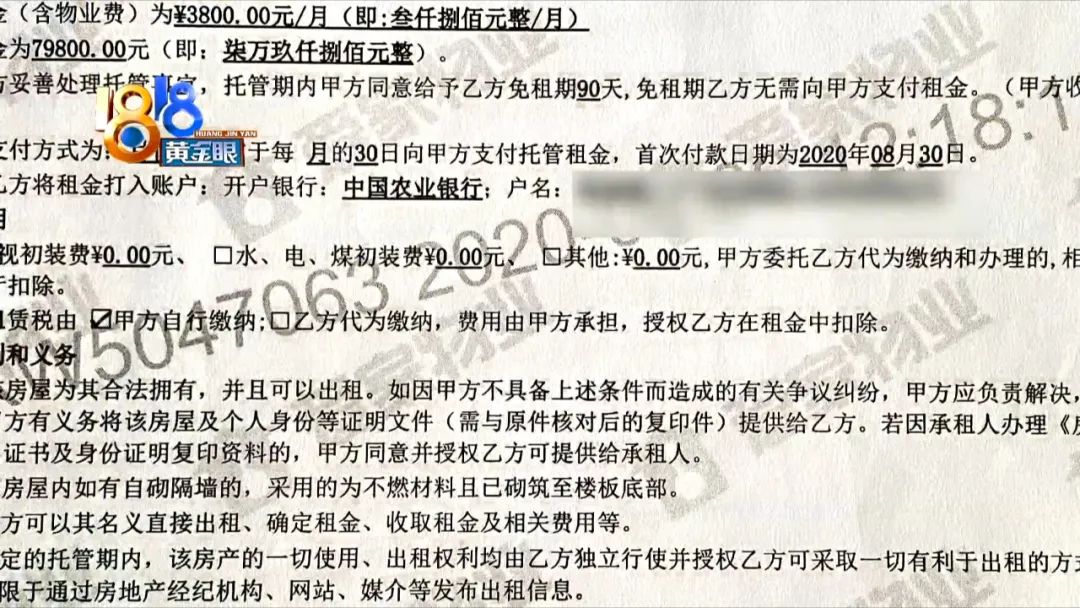 金（含物业费）为¥3800.00元/月（即:叁仟捌佰元整/月）
金为79800.00元（即：柒万玖仟捌佰元整）.
方妥善处理托管事宜，托管期内甲方同意给予乙方免租期90天,免租期乙方无需向甲方支付租金。（甲方收
1818
HUANG JIN YAN
黄金眼
支付方式为： 于每 月的30日向甲方支付托管租金，首次付款日期为2020年08月30日。
乙方将租金打入账户：开户银行：中国农业银行；户名：
明
视初装费¥0.00元、 □水、电、煤初装费¥0.00元、 □其他:¥0.00元,甲方委托乙方代为缴纳和办理的,相
行扣除。
租赁税由 ☑甲方自行缴纳;□乙方代为缴纳，费用由甲方承担，授权乙方在租金中扣除。
利和义务
该房屋为其合法拥有，并且可以出租。如因甲方不具备上述条件而造成的有关争议纠纷，甲方应负责解决，
甲方有义务将该房屋及个人身份等证明文件（需与原件核对后的复印件）提供给乙方。若因承租人办理《房
证书及身份证明复印资料的，甲方同意并授权乙方可提供给承租人。
房屋内如有自砌隔墙的，采用的为不燃材料且已砌筑至楼板底部。
方可以其名义直接出租、确定租金、收取租金及相关费用等。
定的托管期内，该房产的一切使用、出租权利均由乙方独立行使并授权乙方可采取一切有利于出租的方式
限于通过房地产经纪机构、网站、媒介等发布出租信息。